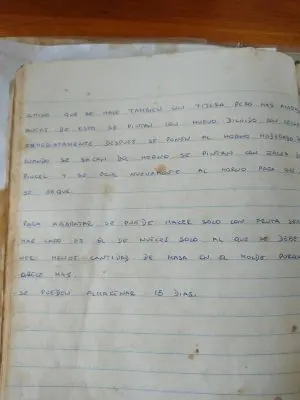 ULTIMO QUE SE HACE TAMBIEN CON TIJERA PERO MAS
ANTES DE ESTO SE PINTAN CON HUEVO DILUIDO CON
INMEDIATAMENTE DESPUES SE PONEN AL HORNO MODERADO
CUANDO SE SACAN DEL HORNO SE PINTAN CON
PINCEL Y SE NUEVAMENTE AL HORNO PARA QUE
SE SEQUE.
PARA ABARATAR SE PUEDE HACER SOLO CON FRUTA
MAS CARO ES EL DE NUECES SOLO AL QUE SE DEBE
MENOS CANTIDAD DE MASA EN EL MOLDE PORQUE
CRECE MAS.
SE PUEDEN ALMACENAR 15 DIAS.